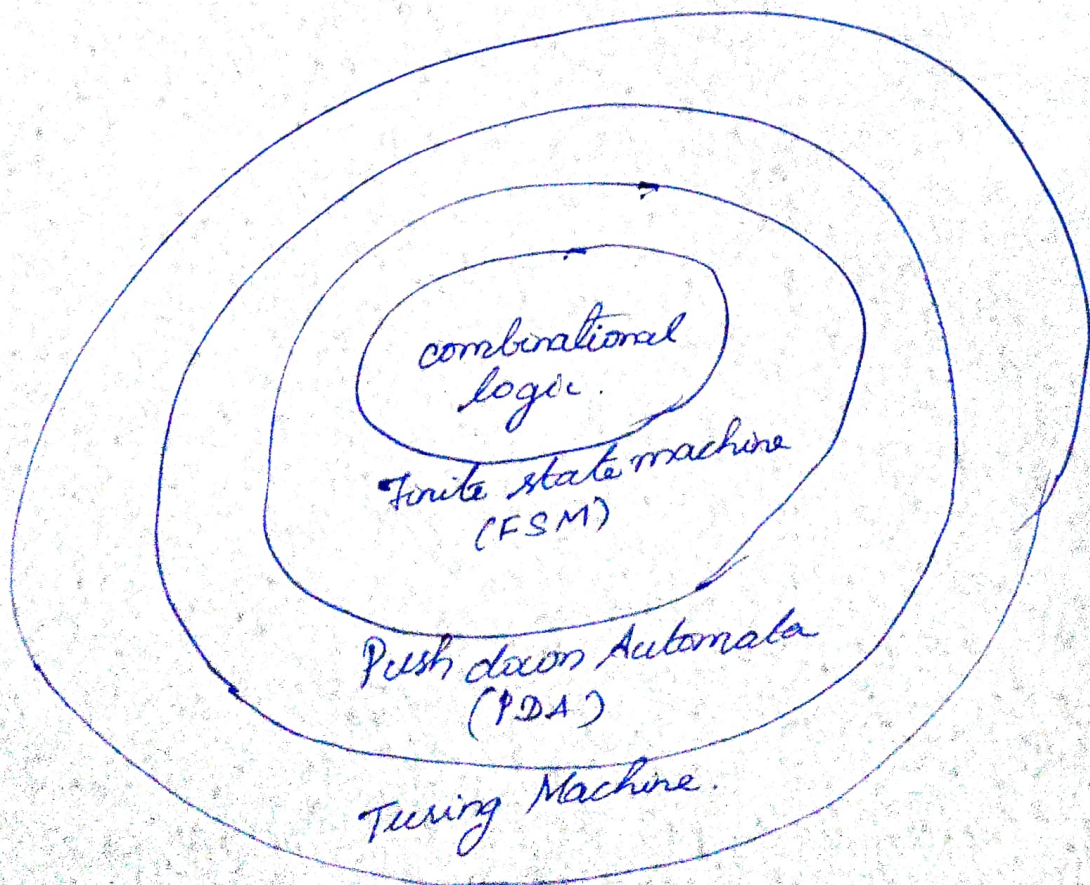 combinational
logic.
Finite state machine
(FSM)
Push down Automata
(PDA)
Turing Machine.